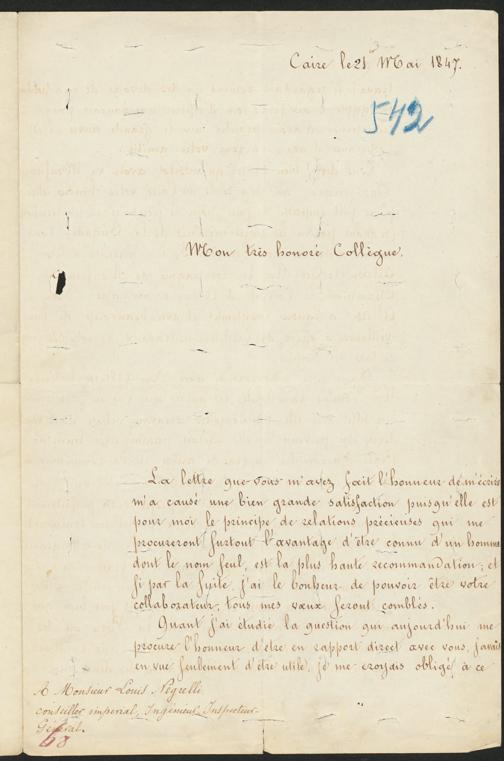 Caire le 21 Mai 1847.
542
Mon très honoré Collègue.
La lettre que vous m'avez fait l'honneur de m'écrire
m'a causé une bien grande satisfaction puisqu'elle est
pour moi le principe de relations précieuses qui me
procureront surtout l'avantage d'être connu d'un homme
dont le nom seul, est la plus haute recommandation; et
si par la suite, j'ai le bonheur de pouvoir être votre
collaborateur, tous mes vœux seront comblés.
Quant j'ai étudié la question qui aujourd'hui me
procure l'honneur d'être en rapport direct avec vous, j'avais
en vue seulement d'être utile, je me croyais obligé à ce
A Monsieur Louis Négrelli
conseiller imperial, Ingénieur, Inspecteur
Général.